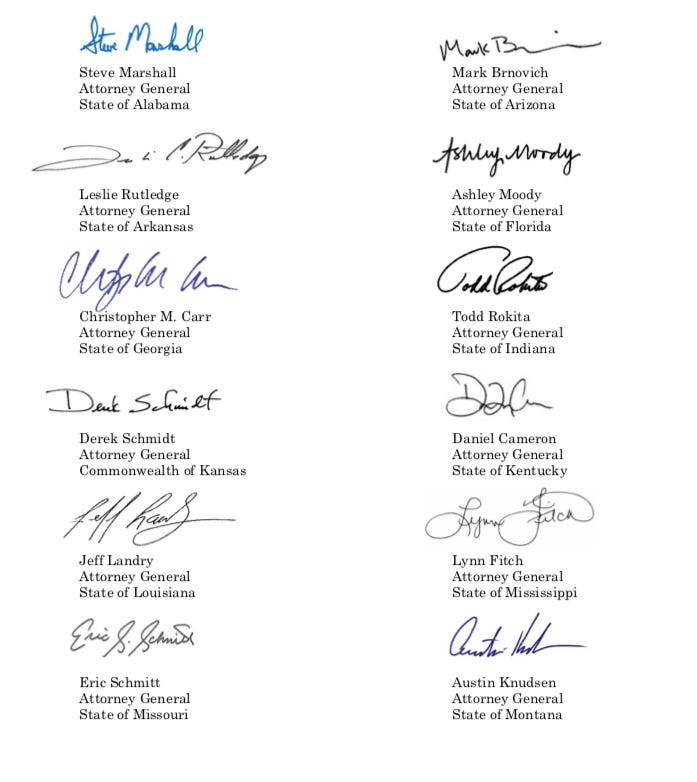 Steve Marshall
Mark B
Steve Marshall
Attorney General
State of Alabama
Mark Brnovich
Attorney General
State of Arizona
C. Rutledge
Ashley Moody
Leslie Rutledge
Attorney General
State of Arkansas
Ashley Moody
Attorney General
State of Florida
Todd Rokita
Christopher M. Carr
Attorney General
State of Georgia
Todd Rokita
Attorney General
State of Indiana
Derek Schmidt
Derek Schmidt
Attorney General
Commonwealth of Kansas
Daniel Cameron
Attorney General
State of Kentucky
Jeff Landry
Lynn Fitch
Jeff Landry
Attorney General
State of Louisiana
Lynn Fitch
Attorney General
State of Mississippi
Eric S. Schmitt
Austin
Eric Schmitt
Attorney General
State of Missouri
Austin Knudsen
Attorney General
State of Montana